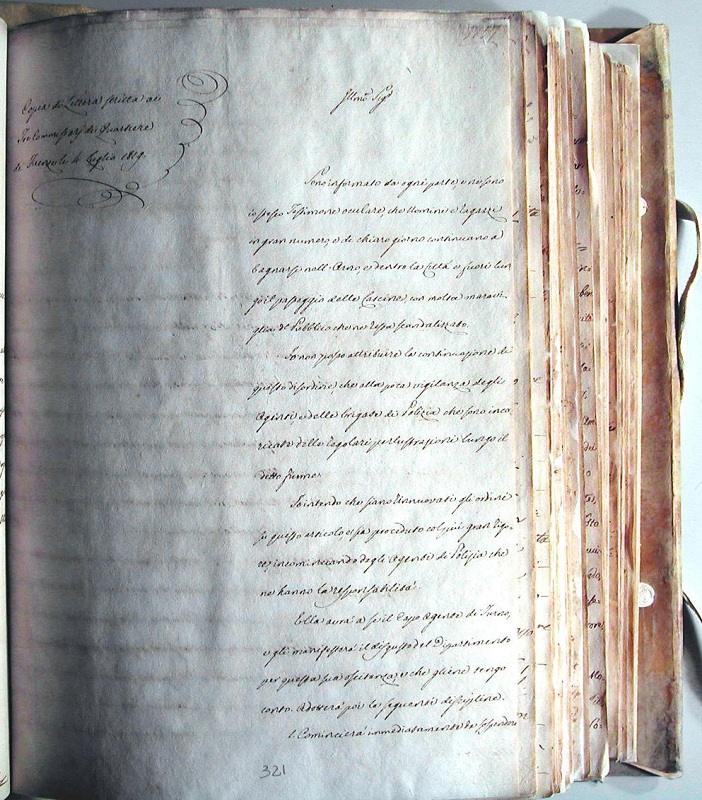 Copia di Lettera scritta ai
Tre Commissarj di Quartiere
di Firenze li Luglio 1819.
Illmo Sigre
Sono informato da ogni parte, e ne sono
io stesso Testimone oculare, che Uomini e Ragazzi
in gran numero, e di chiaro giorno continuano a
bagnarsi nell'Arno, e dentro la Città e fuori lun
go il passeggio delle Cascine, con molta maravi-
glia del Pubblico che ne resta scandalizzato.
Io non posso attribuire la continuazione di
questo disordine, che alla poca vigilanza degli
Agenti, e delle brigate di Polizia che sono inca
ricate delle regolari perlustrazioni lungo il
detto fiume.
Io intendo che siano rinnuovati gli ordini
su questo articolo, e sia proceduto col più gran rigo-
re, incominciando dagli Agenti di Polizia che
ne hanno la responsabilità.
Ella avrà a se il Capo Agente di Turno,
e gli manifesterà il disgusto del Dipartimento
per questa sua oscitanza, e che gliene tengo
conto. Adotterà poi le seguenti discipline.
1. Comincierà immediatamente da sospendere
321